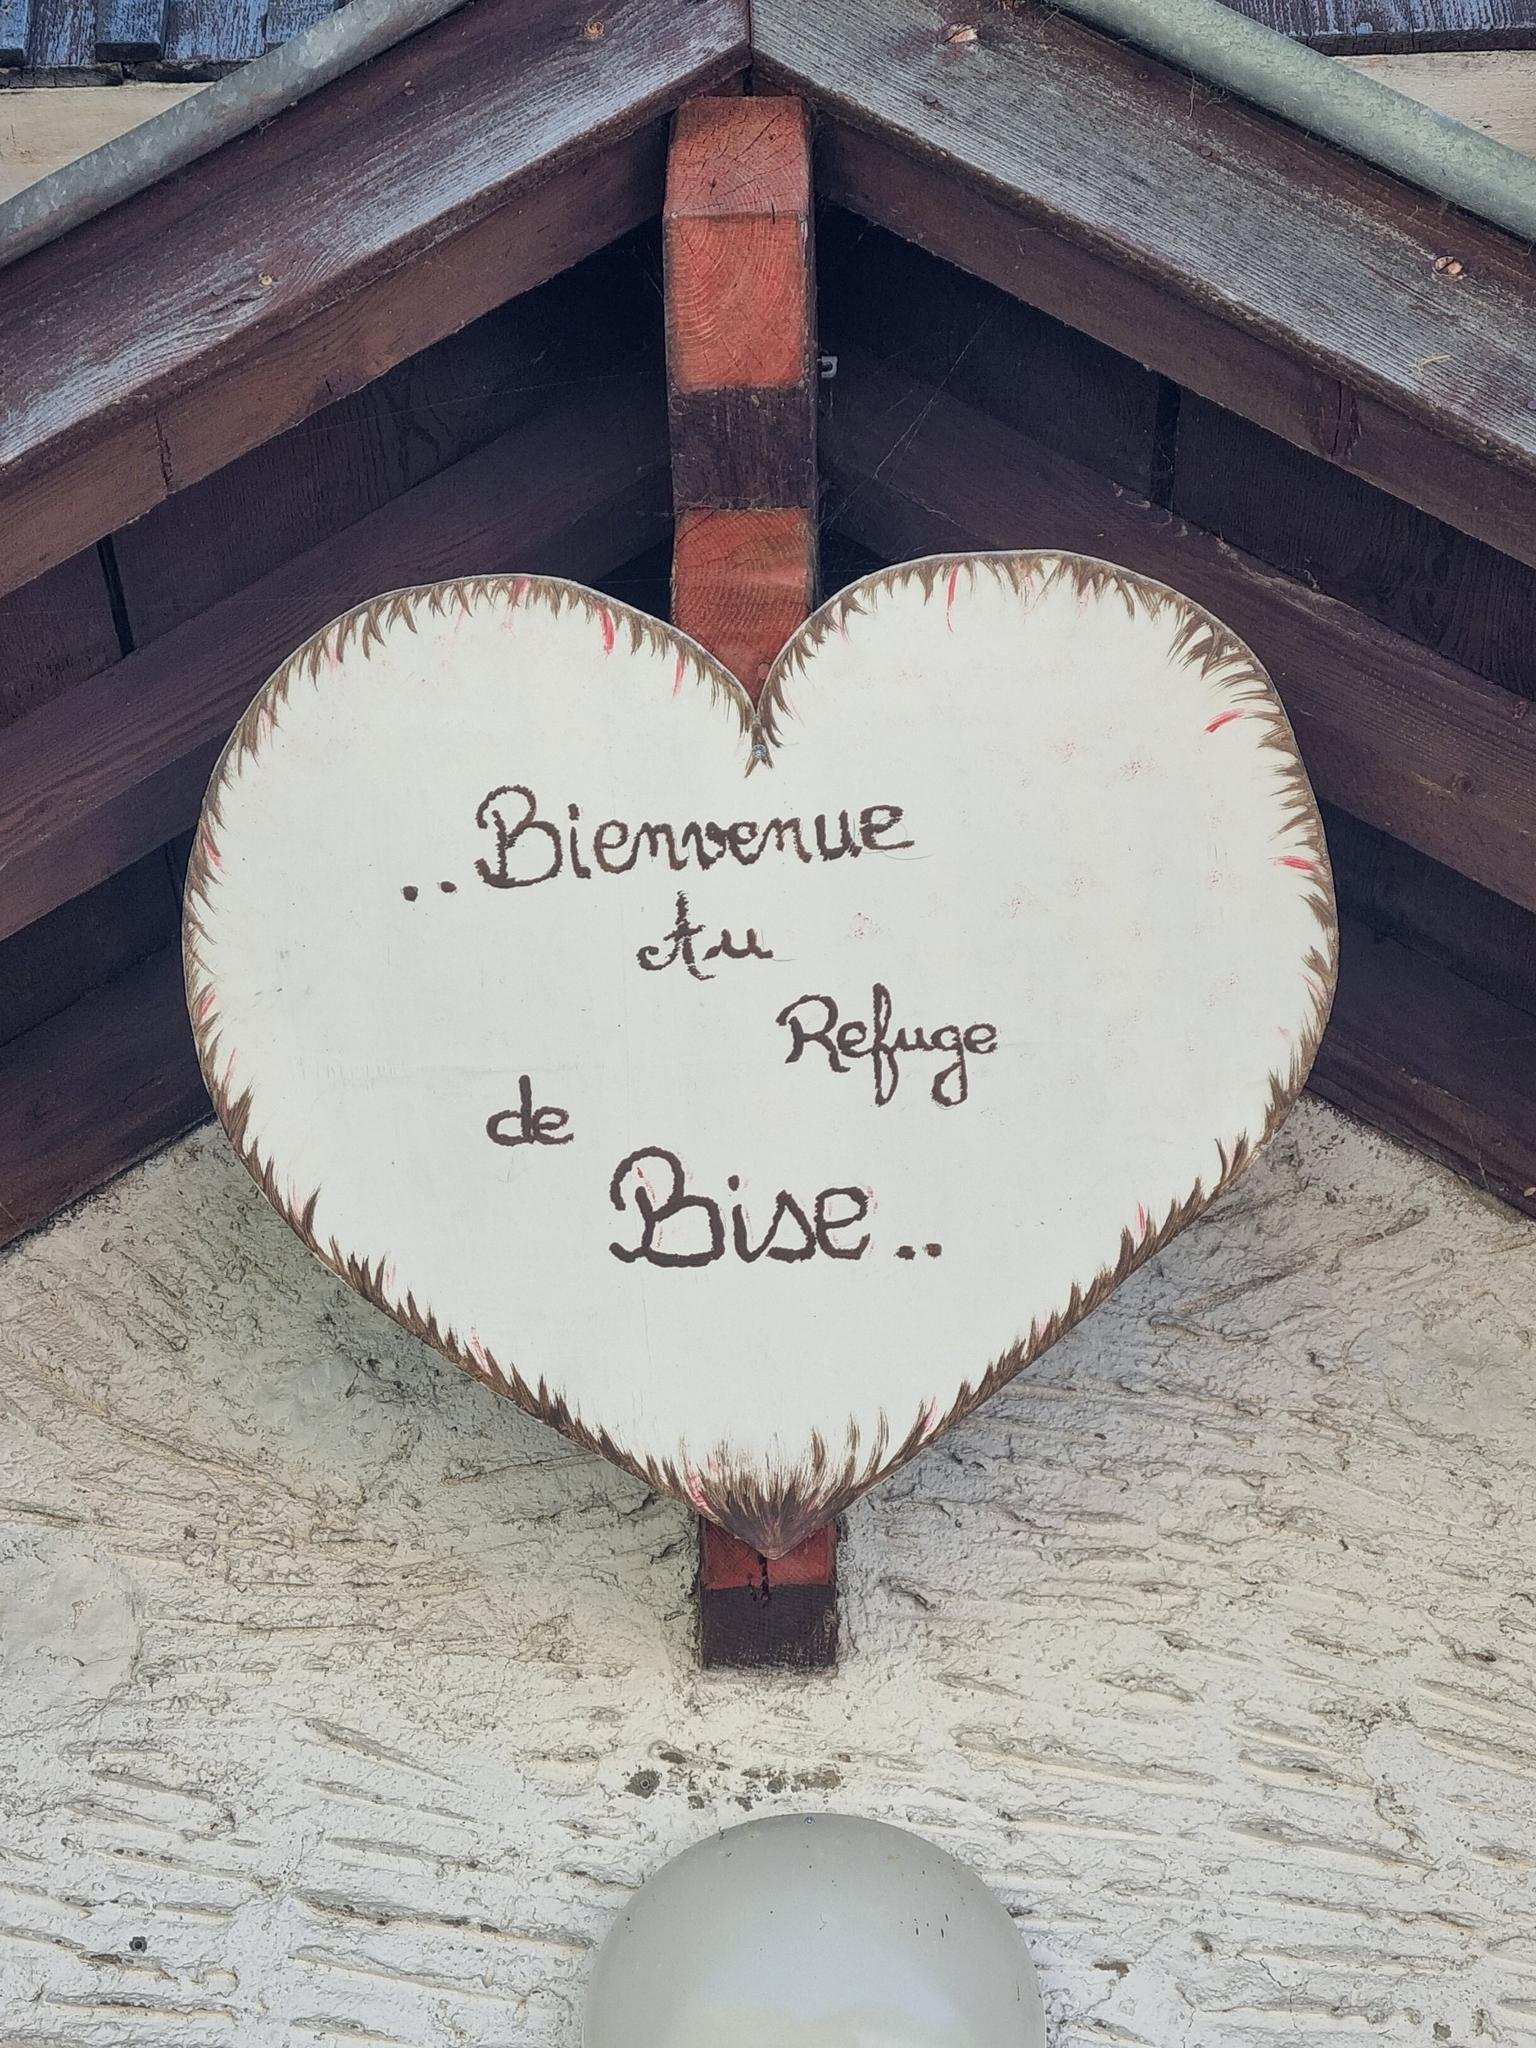 ..Bienvenue
Au
Refuge
de
Bise..